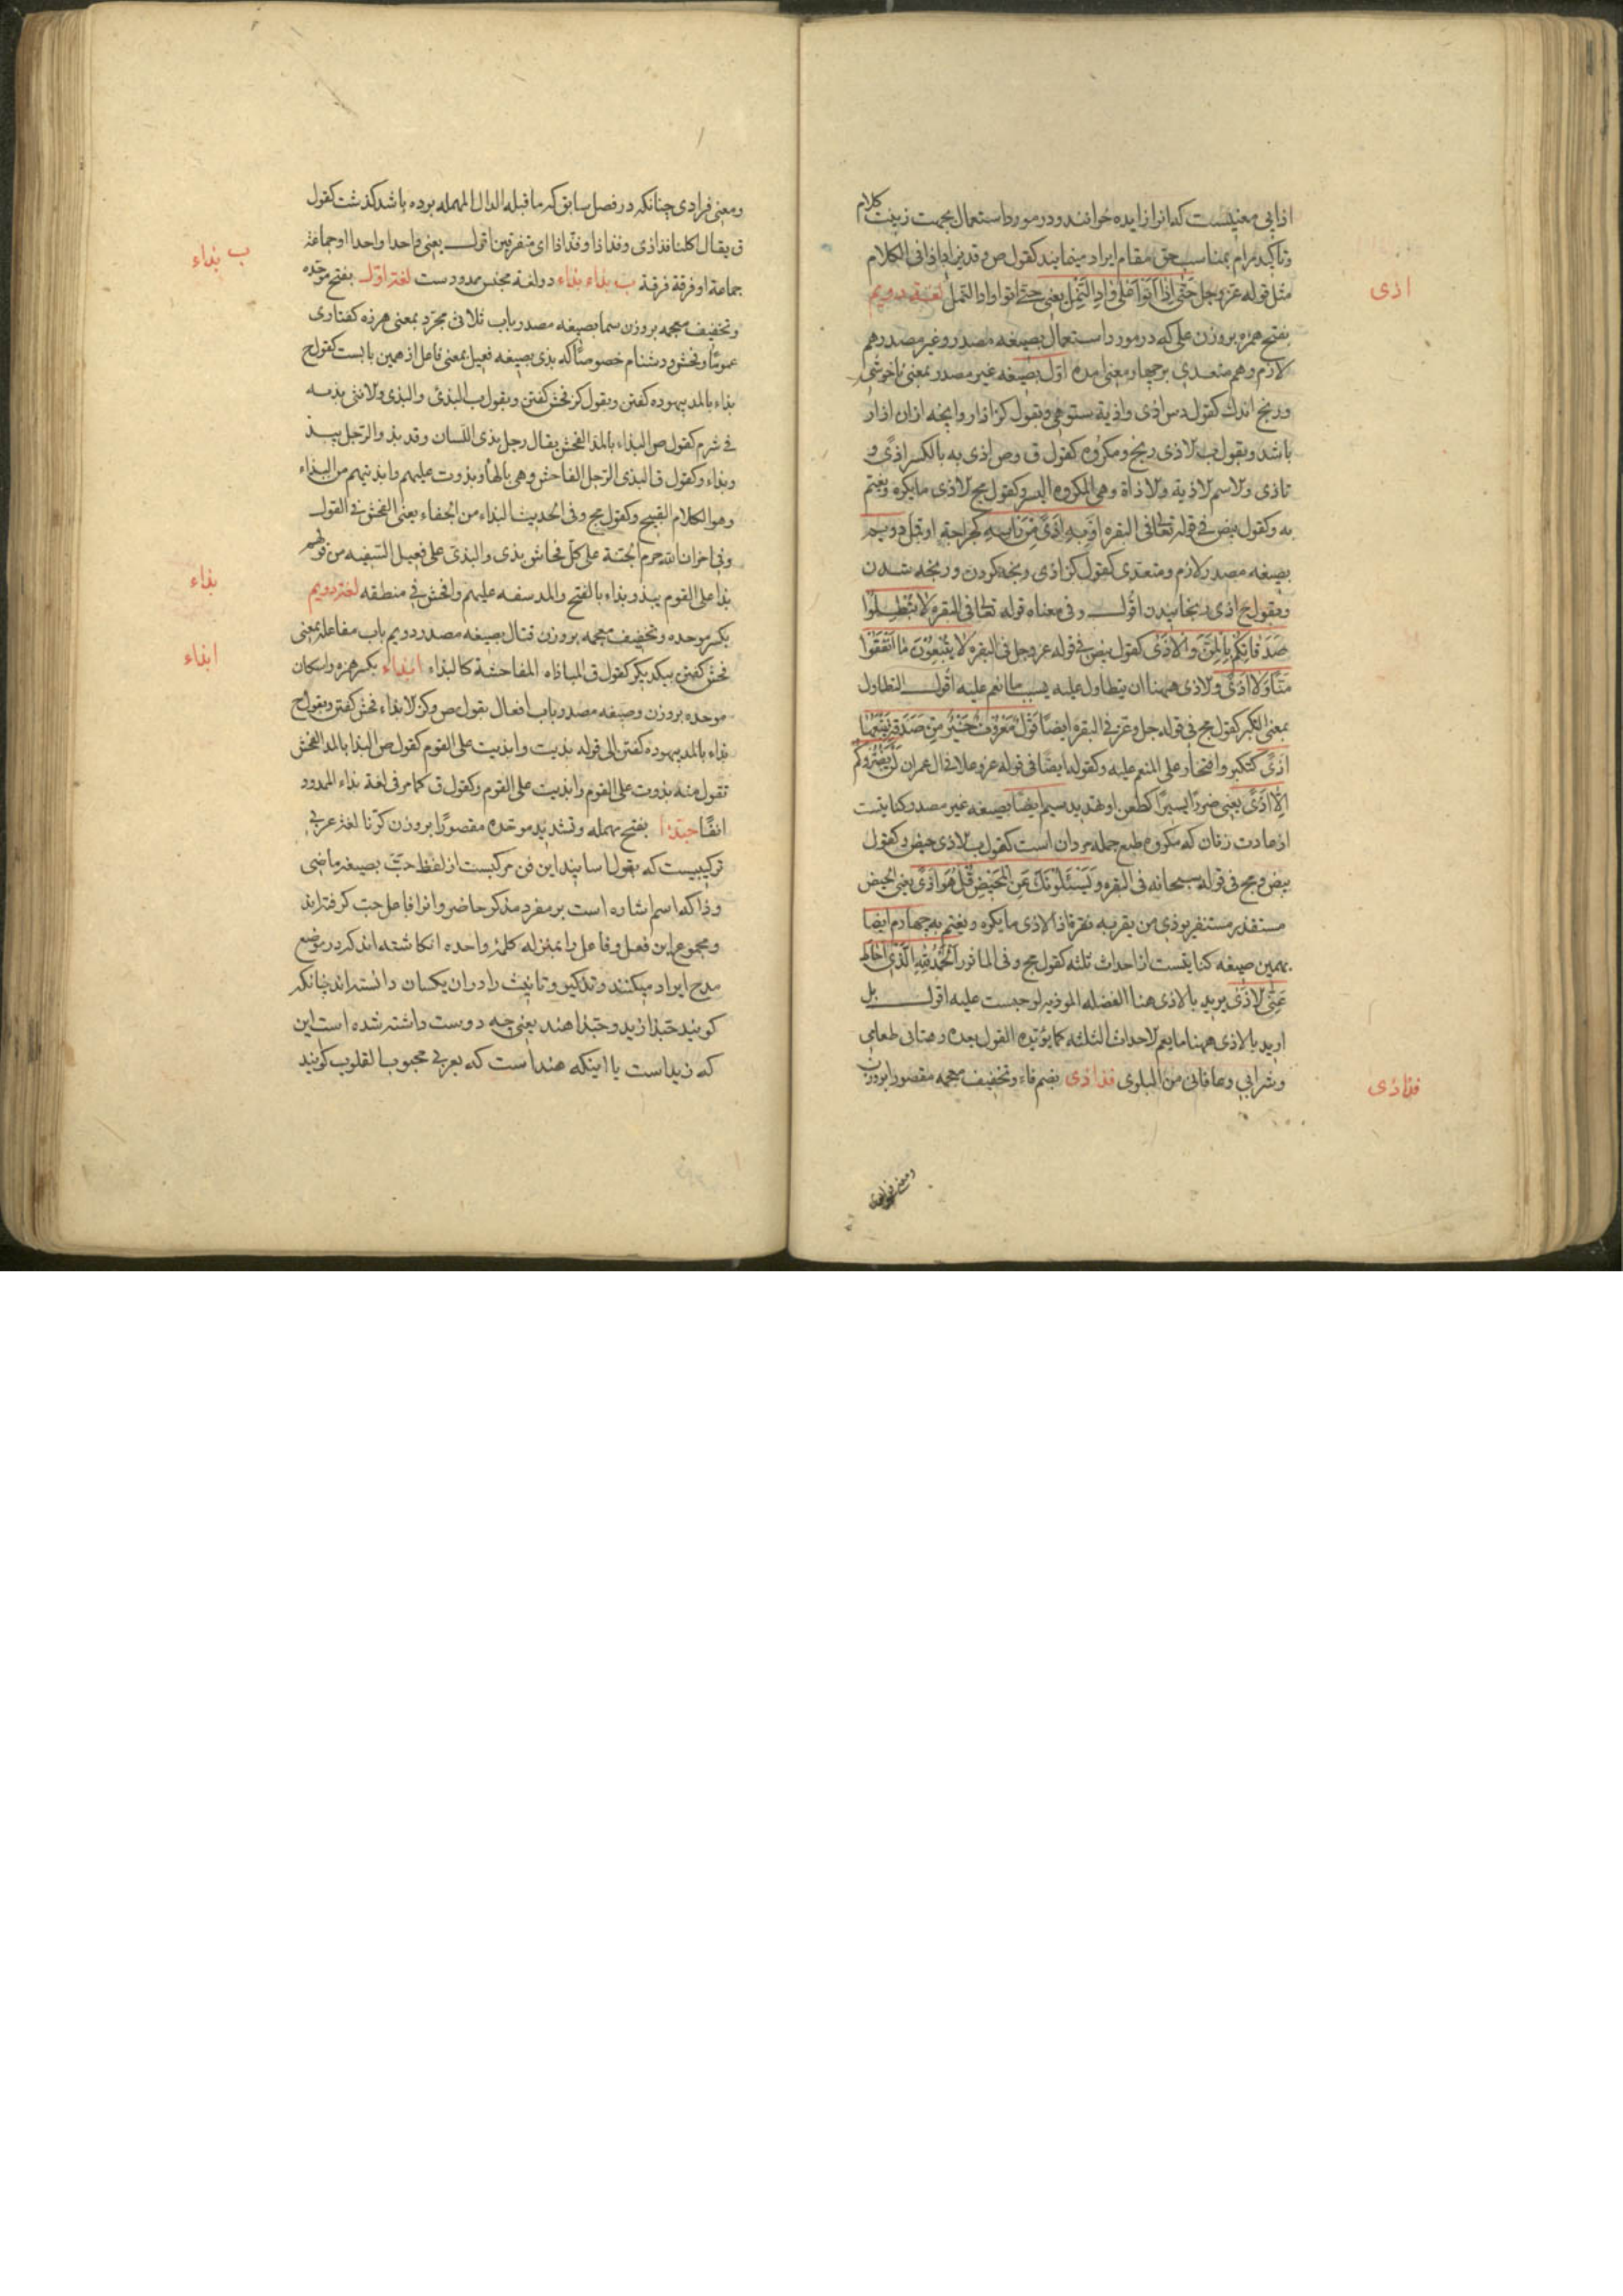 اذایی معنیست که انرا زایده خوانند و در مورد استعمال بجهت زینت کلام
و تاکید مرام بمناسب حق مقام ایراد مینمایند کقول ص و قد یزاد اذا فی الکلام
مثل قوله عز و جل حَتّٰی اِذٰا اَتَوْا عَلیٰ وٰادِ النَّمْلِ یعنی حتی اتوا واد النمل لغة دویم
اذی
بفتح همزه بر وزن علی که در مورد استعمال بصیغه مصدر و غیر مصدر هم
لازم و هم متعدی بر چهار معنی امده اول بصیغه غیر مصدر بمعنی ناخوشی
و رنج اندك کقول دس اذی و اذیة ستوهی و بقول کز ازار و اینچه ازان ازار
باشد و بقول ب الاذی رنج و مکروه کقول ق و ص اذی به بالکسر اذًی و
تاذی و الاسم الاذیة و الاذاة وهی المکروه الیسیر و کقول مج الاذی ما یکره و یغتم
به و کقول بیض فی قوله تعالی فی البقره اَوْ بِهِ اَذًی مِنْ رَاْسِهِ کجراحة او قمل دویم
بصیغه مصدر لازم و متعدی کقول کز اذی رنجه کردن و رنجه شدن
و بقول ج اذی رنجانیدن اقول و فی معناه قوله تعالی فی البقره لٰا تُبْطِلُوا
صَدَقٰاتِکُمْ بِالْمَنِّ وَ الْاَذیٰ کقول بیض فی قوله عز و جل فی البقره لٰا یُتْبِعُونَ مٰا اَنْفَقُوا
مَنًّا وَ لٰا اَذًی و الاذی ههنا ان یتطاول علیه بسبب ما انعم علیه اقول التطاول
بمعنی التکبر کقول مج فی قوله جل و عز فی البقره ایضًا قَوْلٌ مَعْرُوفٌ خَیْرٌ مِنْ صَدَقَةٍ یَتْبَعُهٰا
اَذًی کتکبر و افتخار علی المنعم علیه و کقوله ایضًا فی قوله عز و علا فی ال عمران لَنْ یَضُرُّوکُمْ
اِلّٰا اَذًی یعنی ضررًا یسیرًا کطعن او تهدید سیم ایضًا بصیغه غیر مصدر کنایتست
از عادت زنان که مکروه طبع جمله مردان است کقول ب الاذی حیض و کقول
بیض و مج فی قوله سبحانه فی البقره وَ یَسْئَلُونَكَ عَنِ الْمَحِیضِ قُلْ هُوَ اَذًی یعنی الحیض
مستقذر مستنفر یوذی من یقربه نفرة اذ الاذی ما یکره و یغتم به چهارم ایضا
بهمین صیغه کنایتست از احداث ثلثه کقول مج و فی الماثور اَلْحَمْدُ لِلّٰهِ الَّذی اَمٰاطَ
عَنِّی الْاَذیٰ یرید بالاذی هنا الفضله الموذیه لو حبست علیه اقول بل
ارید بالاذی ههنا ما یعم الاحداث الثلثه کما یؤیده القول بعده و هنانی طعامی
و شرابی و عافانی من البلوی فذاذی بضم فاء و تخفیف معجمه مقصورا بروزن
فذاذی
و معنی فرادی
و معنی فرادی چنانکه در فصل سابق که ما قبله الدال المهمله بوده باشد گذشت کقول
ق یقال اکلنا فذاذی و فذاذا و فذّاذا ای متفرقین اقول یعنی واحدا واحدا او جماعة
ب بذاء
جماعة او فرقة فرقة ب بذاء بذاء دو لغه مجنس ممدودست لغة اول بفتح موحده
و تخفیف معجمه بر وزن سما بصیغه مصدر باب ثلاثی مجرد بمعنی هرزه گفتاری
عمومًا و فحش و دشنام خصوصًا که بذی بصیغه فعیل بمعنی فاعل از همین بابست کقول ج
بذاء بالمد بیهوده گفتن و بقول کز فحش گفتن و بقول ب البذئ و البذی و الانثی بذیه
بی شرم کقول ص البذاء بالمد الفحش یقال رجل بذی اللسان و قد بذو الرجل یبذو
و بذاء و کقول ق البذی الرجل الفاحش وهی بالهاء و بذوت علیهم و ابذیتهم من البذاء
و هو الکلام القبیح و کقول مج و فی الحدیث البذاء من الجفاء یعنی الفحش فی القول
و فی اخر ان الله حرم الجنة علی کل فحاش بذی و البذی علی فعیل السفیه من قولهم
بذا علی القوم یبذو بذاء بالفتح و المد سفه علیهم و افحش فی منطقه لغة دویم
بذاء
بکسر موحده و تخفیف معجمه بر وزن قتال بصیغه مصدر دویم باب مفاعله بمعنی
فحش گفتن بیکدیگر کقول ق المباذاه المفاحشة کالبذاء ابذاء بکسر همزه و اسکان
ابذاء
موحده بر وزن و صیغه مصدر باب افعال بقول ص و کز الابذاء فحش گفتن و بقول ج
بذاء بالمد بیهوده گفتن الی قوله بذیت و ابذیت علی القوم کقول ص البذا بالمد الفحش
تقول منه بذوت علی القوم و ابذیت علی القوم و کقول ق کما مر فی لغة بذاء الممدود
انفًا حبّذا بفتح مهمله و تشدید موحده مقصورًا بروزن کرّنا لغة عربی
ترکیبیست که بقول اساتید این فن مرکبست از لفظ حبّ بصیغه ماضی
و ذا که اسم اشاره است بر مفرد مذکر حاضر و انرا فاعل حب گرفته اند
و مجموع این فعل و فاعل را بمنزله کلمۀ واحده انکاشته اند که در موضع
مدح ایراد میکنند و تذکیر و تانیث را دران یکسان دانسته اند چنانکه
گویند حبّذا زید و حبّذا هند یعنی چه دوست داشته شده است این
که زید است یا اینکه هند است که بعربی محبوب القلوب گویند